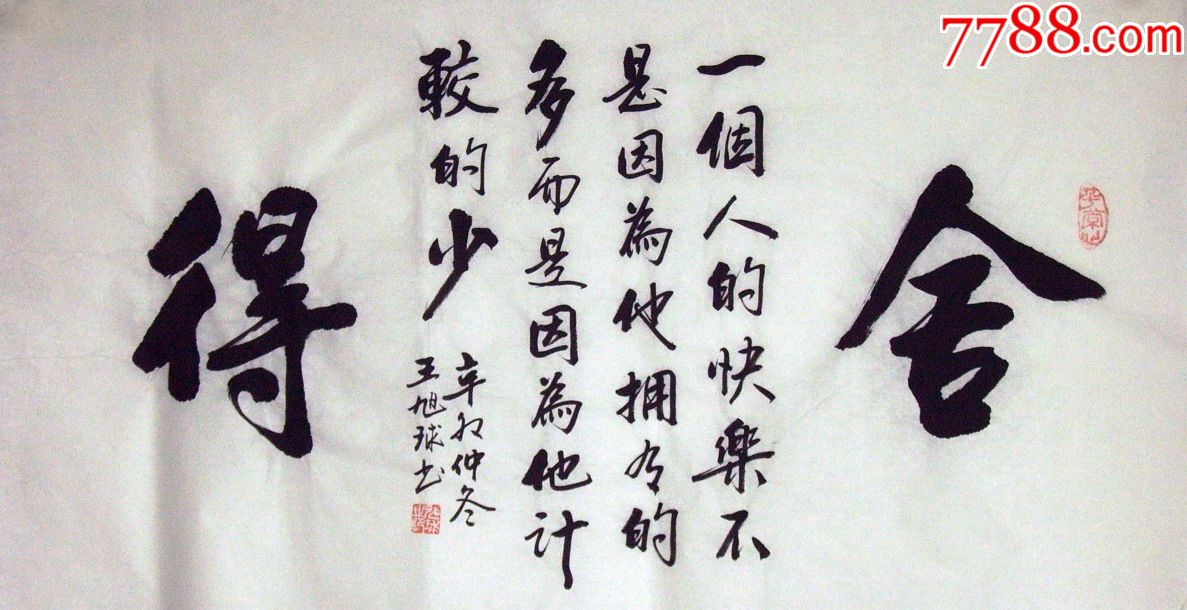 7788.com
舍
一個人的快樂不
是因為他拥有的
多而是因為他计
較的少
辛卯仲冬
王旭球书
得